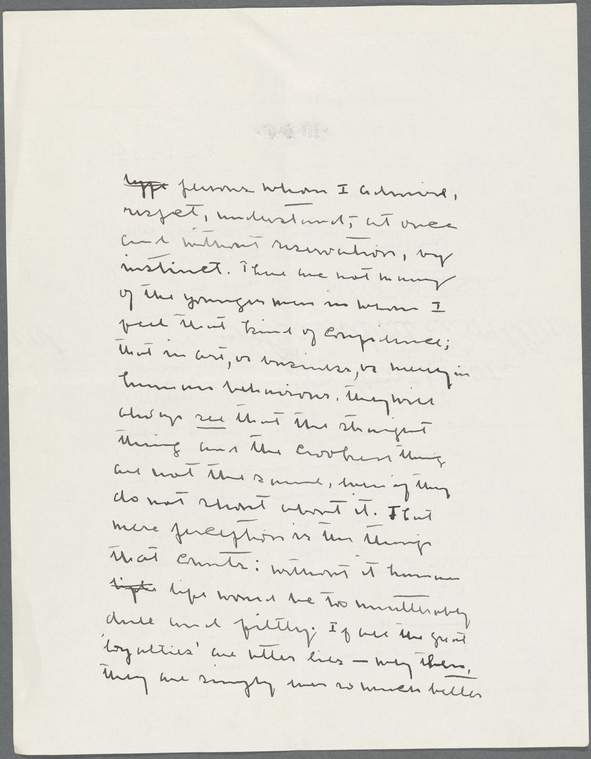 persons whom I admire,
respect, understand, at once
and without reservation, by
instinct. There are not many
of the younger men in whom I
feel that kind of confidence;
that in art, or business, or merely in
human behaviour, they will
always see that the straight
thing and the crooked thing
are not the same, even if they
do not shout about it. That
mere perception is the thing
that counts: without it human
life would be too unutterably
dull and filthy. If all the great
'loyalties' are utter lies — why then,
they are simply ever so much better